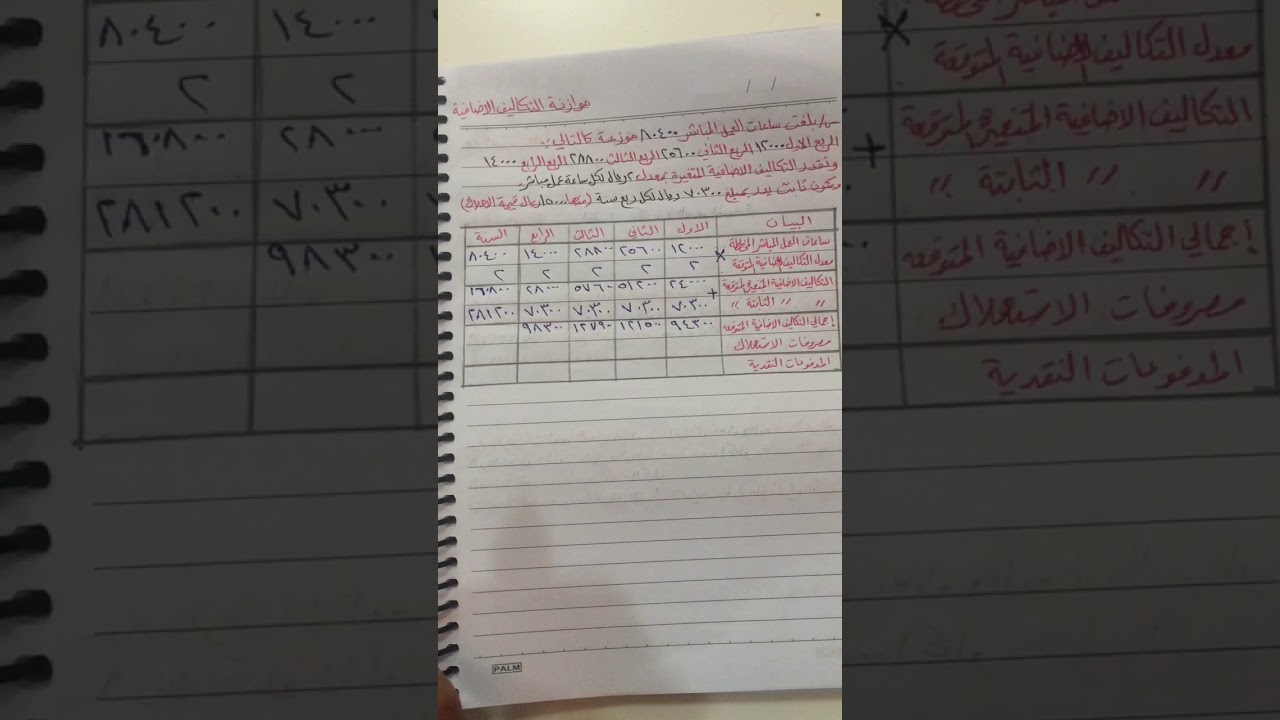 موازنة التكاليف الاضافية
س/ بلغت ساعات العمل المباشر ٨٠٤٠٠ موزعة كالتالي:
الربع الاول ١٢٠٠٠ الربع الثاني ٢٥٦٠٠ الربع الثالث ٢٨٨٠٠ الربع الرابع ١٤٠٠٠
وتقدر التكاليف الاضافية المتغيرة بمعدل ٢ ريال لكل ساعة عمل مباشر
ويكون ثابت يبدء بمبلغ ٧٠٣٠٠ ريال لكل ربع سنة (منها ١٥٠٠٠ ريال قيمة الاهلاك)
البيان الاول الثاني الثالث الرابع السنة
ساعات العمل المباشر المخططة ١٢٠٠٠ ٢٥٦٠٠ ٢٨٨٠٠ ١٤٠٠٠ ٨٠٤٠٠
× معدل التكاليف الاضافية المتوقعة ٢ ٢ ٢ ٢ ٢
التكاليف الاضافية المتغيرة المتوقعة ٢٤٠٠٠ ٥١٢٠٠ ٥٧٦٠٠ ٢٨٠٠٠ ١٦٠٨٠٠
+ " " الثابتة " ٧٠٣٠٠ ٧٠٣٠٠ ٧٠٣٠٠ ٧٠٣٠٠ ٢٨١٢٠٠
إجمالي التكاليف الاضافية المتوقعه ٩٤٣٠٠ ١٢١٥٠٠ ١٢٧٩٠٠ ٩٨٣٠٠
مصروفات الاستهلاك
المدفوعات النقدية
PALM